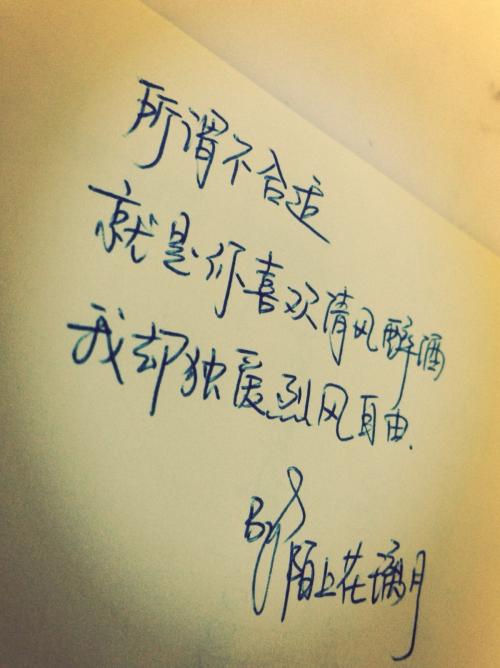 所谓不合适
就是你喜欢清风醉酒
我却独爱烈风自由.
By 陌上花璃月